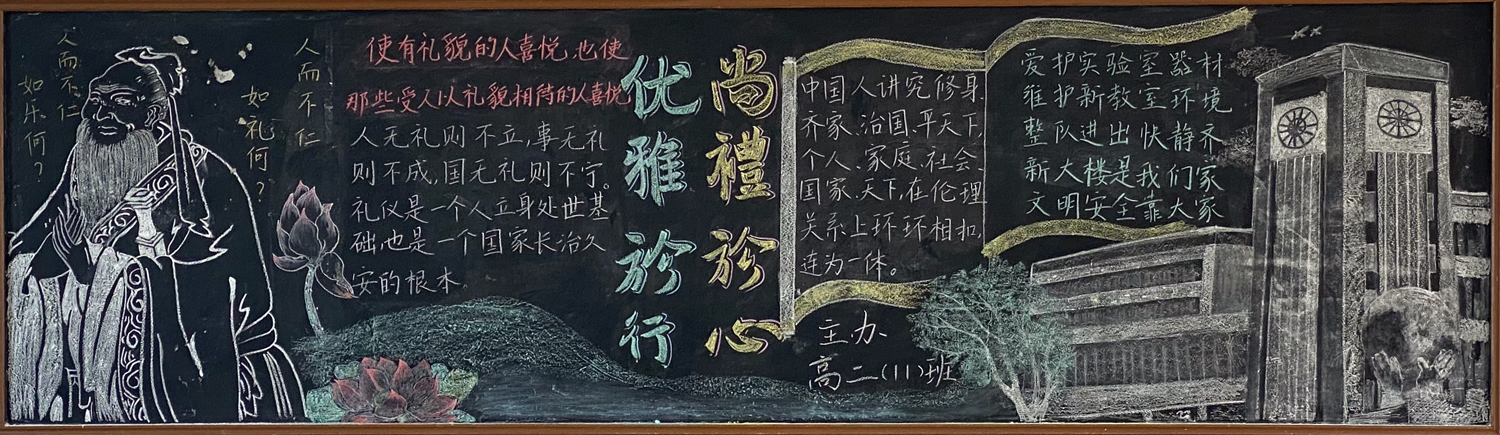 人而不仁
如乐何？
人而不仁
如礼何？
使有礼貌的人喜悦，也使
那些受人以礼貌相待的人喜悦
人无礼则不立，事无礼
则不成，国无礼则不宁。
礼仪是一个人立身处世基
础，也是一个国家长治久
安的根本
尚禮於心
优雅於行
中国人讲究修身、
齐家、治国、平天下，
个人、家庭、社会、
国家、天下，在伦理
关系上环环相扣，
连为一体。
主办、
高二（11）班
爱护实验室器材
维护新教室环境
整队进出快静齐
新大楼是我们家
文明安全靠大家